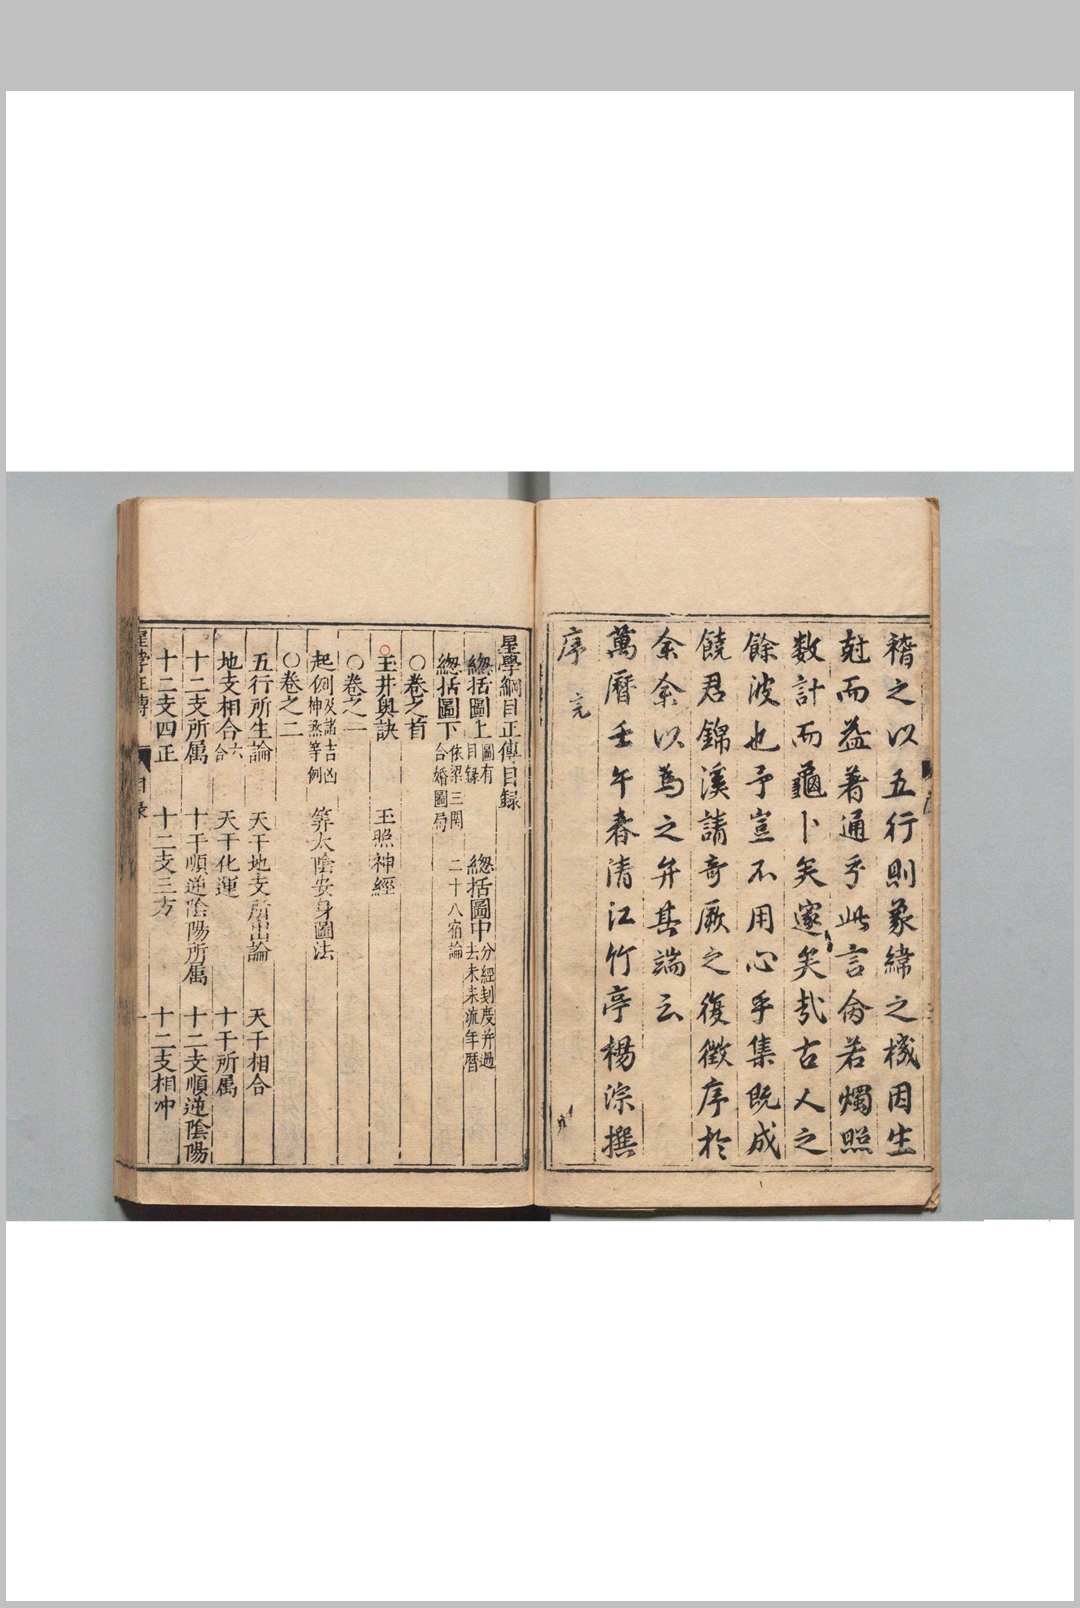 稽之以五行則彖緯之機因生
尅而益著通乎此言侖若燭照
数計而龜卜矣邃矣哉古人之
餘波也予豈不用心乎集既成
饒君錦溪請奇厥之復徵序於
余余以為之弁其端云
萬曆壬午春清江竹亭楊淙撰
序完
星學綱目正傳目録
緫括圖上 圖有目録 緫括圖中 分經刻度并過去未来流年曆
緫括圖下 依梁三閣合婚圖局 二十八宿論
○卷之首
玉井奥訣 玉照神經
○卷之一
起例 及諸吉凶神煞等例 筭太陰安身圖法
○卷之二
五行所生論 天干地支所出論 天干相合
地支相合 六合 天干化運 十干所属
十二支所属 十干順逆陰陽所属 十二支順逆陰陽
十二支四正 十二支三方 十二支相冲
星學正傳 目録 一